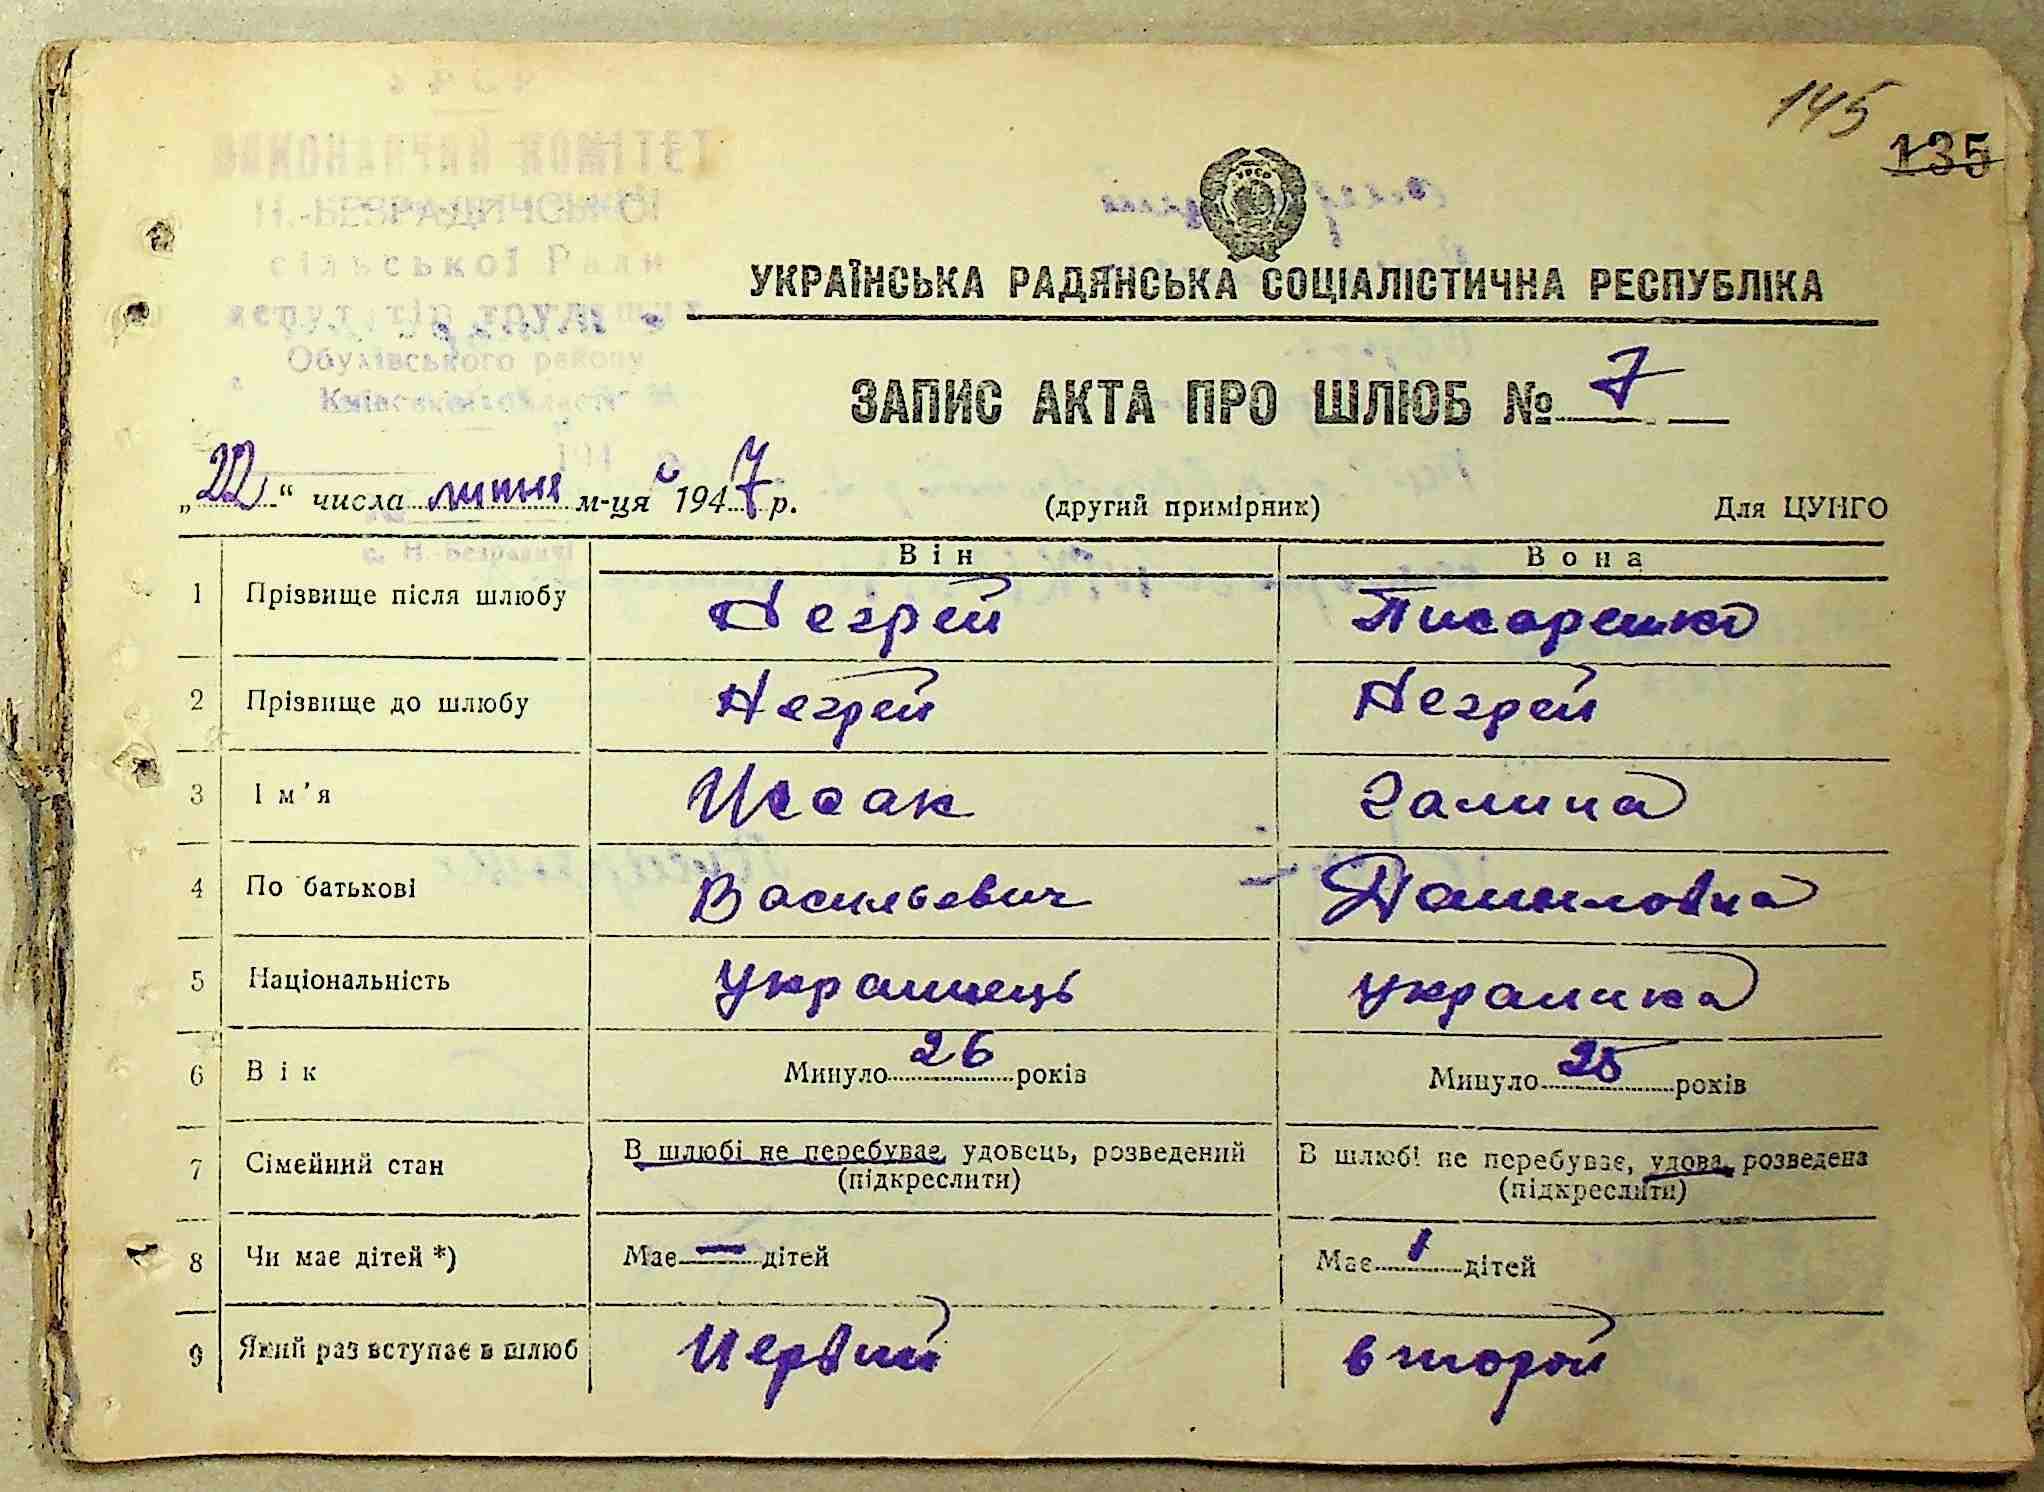 145
135
УРСР
УКРАЇНСЬКА РАДЯНСЬКА СОЦІАЛІСТИЧНА РЕСПУБЛІКА
ЗАПИС АКТА ПРО ШЛЮБ № 7
„22“ числа м-ця 1947 р. (другий примірник) Для ЦУНГО
Він Вона
1 Прізвище після шлюбу Негрей Писаренко
2 Прізвище до шлюбу Негрей Негрей
3 Ім'я Исаак Галина
4 По батькові Васильевич Даниловна
5 Національність украинець украинка
6 Вік Минуло 26 років Минуло 25 років
7 Сімейний стан В шлюбі не перебуває, удовець, розведений В шлюбі не перебуває, удова, розведена
(підкреслити) (підкреслити)
8 Чи має дітей *) Має — дітей Має 1 дітей
9 Який раз вступає в шлюб Первий второй
ВИКОНАВЧИЙ КОМІТЕТ
Н.-БЕЗРАДИЧСЬКОЇ
сільської Ради
депутатів трудящих
Обухівського району
Київської області
с. Н.-Безрадичі